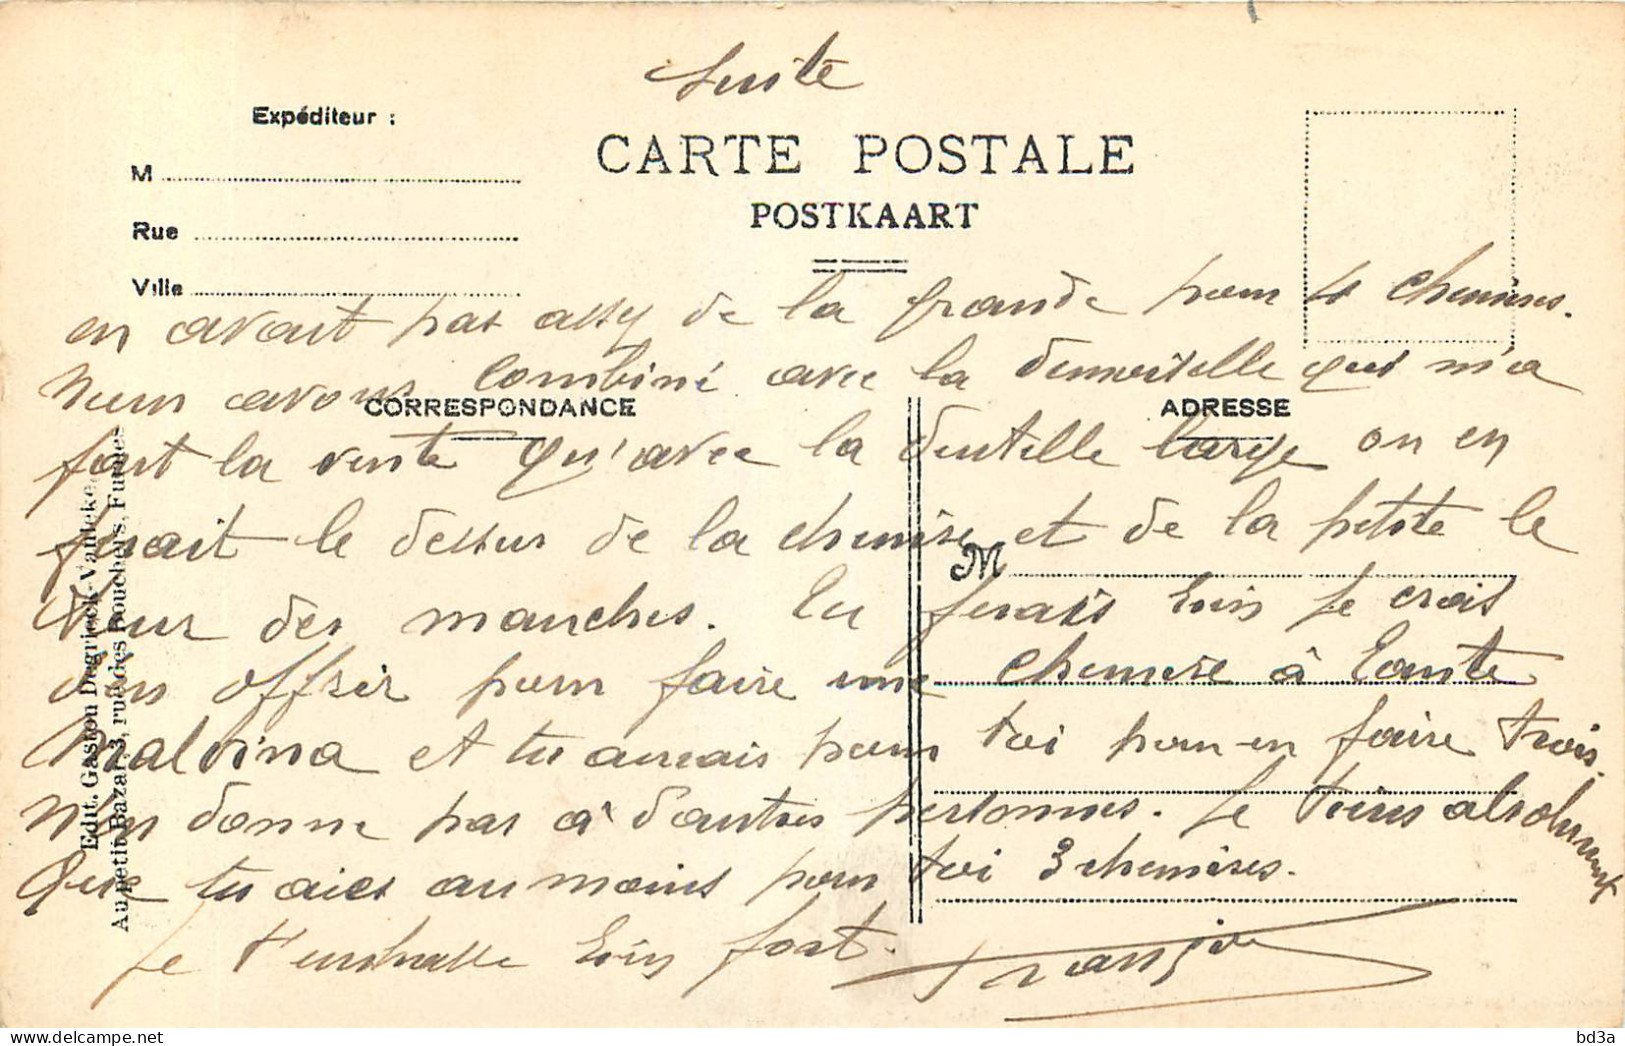 Suite
Expéditeur :
CARTE POSTALE
M
POSTKAART
Rue
Ville
en avait pas assez de la grande pour 4 chemises.
Nous avons combiné avec la demoiselle qui m'a
CORRESPONDANCE
ADRESSE
fait la vente qu'avec la dentelle large on en
ferait le dessus de la chemise et de la petite le
M
tour des manches. Tu ferais bien je crois
d'en offrir pour faire une chemise à Tante
Malvina et tu aurais pour toi pour en faire trois.
N'en donne pas à d'autres personnes. Je tiens absolument
Que tu aies au moins pour toi 3 chemises.
Je t'embrasse bien fort.
Edit. Gaston Degrieck-Vanleke
Au petit Bazar 3, rue des Bouchers, Furnes
bd3a